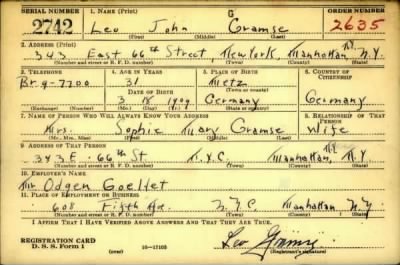 SERIAL NUMBER 1. NAME (Print) ORDER NUMBER
2742 Leo John Gramse 2635
G
(First) (Middle) (Last)
2. ADDRESS (Print)
343 East 66th Street, New York, Manhattan N.Y.
(Number and street or R. F. D. number) (Town) (County) (State)
3. TELEPHONE 4. AGE IN YEARS 5. PLACE OF BIRTH 6. COUNTRY OF CITIZENSHIP
Br 9-7700 31 Metz
DATE OF BIRTH (Town or county)
3 18 1909 Germany Germany
(Exchange) (Number) (Mo.) (Day) (Yr.) (State or country)
7. NAME OF PERSON WHO WILL ALWAYS KNOW YOUR ADDRESS 8. RELATIONSHIP OF THAT PERSON
Mrs. Sophie Mary Gramse Wife
(Mr., Mrs., Miss) (First) (Middle) (Last)
9. ADDRESS OF THAT PERSON
343 E. 66th St N.Y.C. Manhattan, N.Y.
(Number and street or R. F. D. number) (Town) (County) (State)
10. EMPLOYER'S NAME
Mr Odgen Goellet
11. PLACE OF EMPLOYMENT OR BUSINESS
608 Fifth Av. N.Y.C. Manhattan N.Y.
(Number and street or R. F. D. number) (Town) (County) (State)
I AFFIRM THAT I HAVE VERIFIED ABOVE ANSWERS AND THAT THEY ARE TRUE.
REGISTRATION CARD
D. S. S. Form 1 (over) 16-17105 (Registrant's signature)
Leo